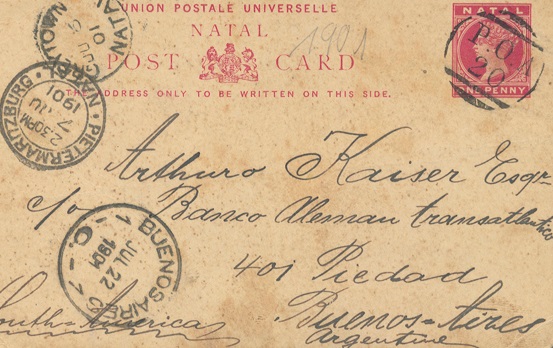 UNION POSTALE UNIVERSELLE
NATAL
POST CARD
THE ADDRESS ONLY TO BE WRITTEN ON THIS SIDE.
1901
NATAL
P.O.A
20
ONE PENNY
GREYTOWN NATAL
01
PIETERMARITZBURG · NATAL
2.30PM
JU 7
1901
Arthuro Kaiser Esqr
c/o Banco Aleman transatlantico
401 Piedad
Buenos=Aires
Argentine
South=America
BUENOS AIRES
JUL 22
1901